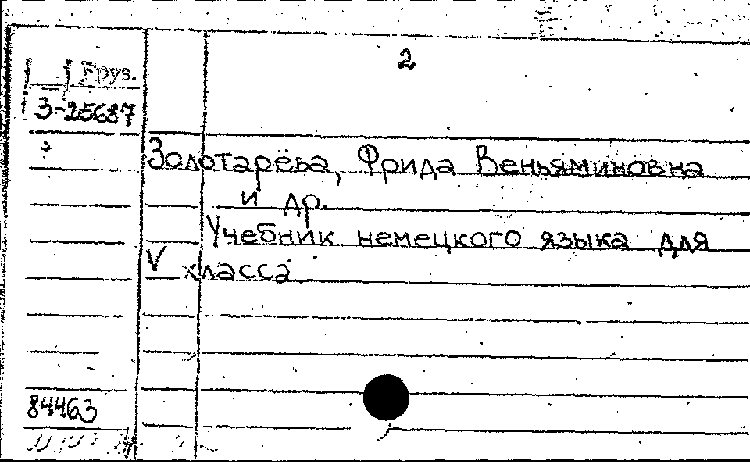 2
Груз.
З-25687
Золотарёва, Фрида Веньяминовна
и др.
Учебник немецкого языка для
V класса
84463